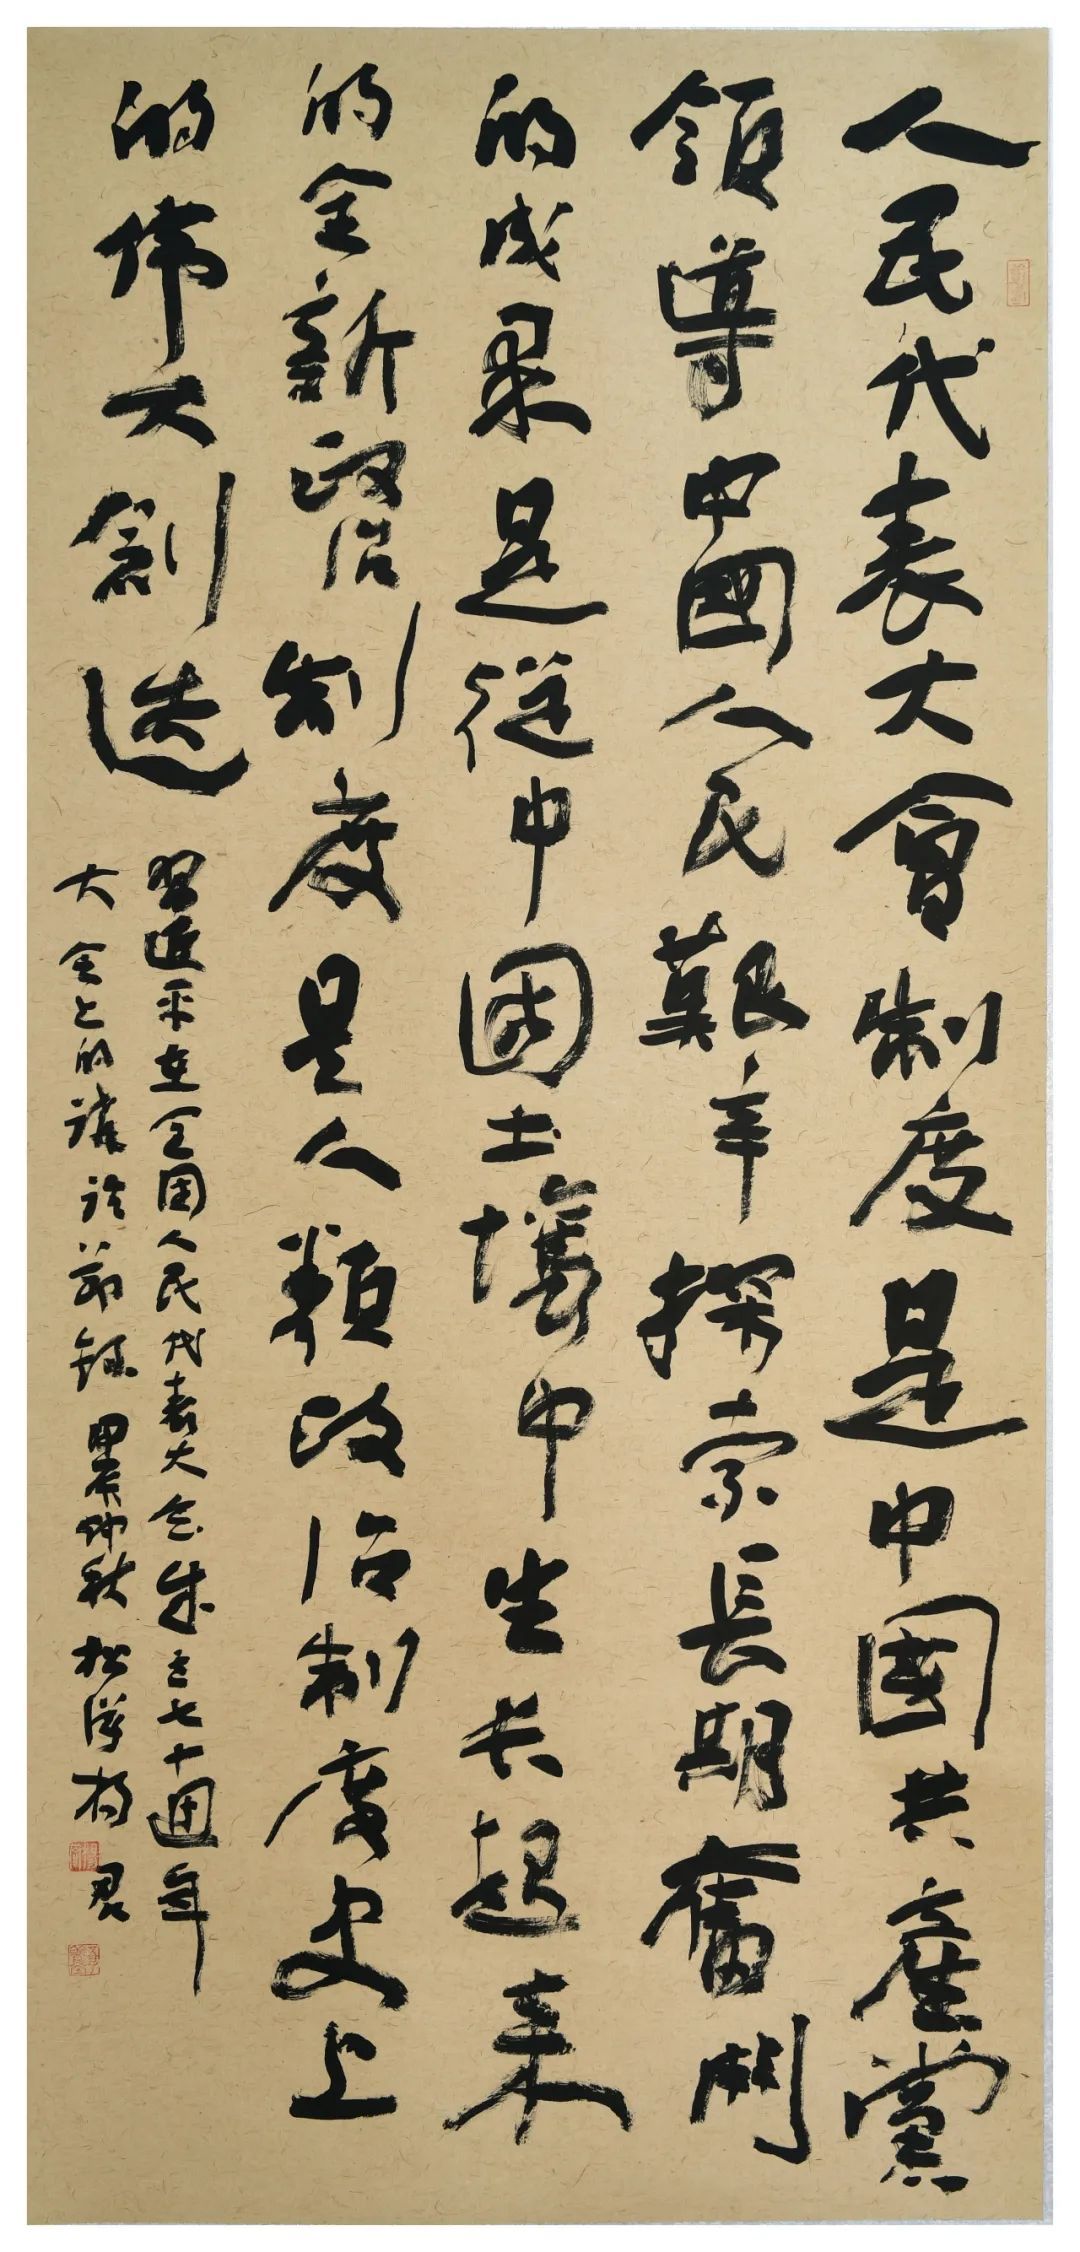 人民代表大會制度是中國共產黨
領導中國人民艱辛探索長期奮鬥
的成果是從中國土壤中生长起来
的全新政治制度是人類政治制度史上
的偉大創造
習近平在全国人民代表大会成立七十週年
大会上的講話節錄 甲辰仲秋 松